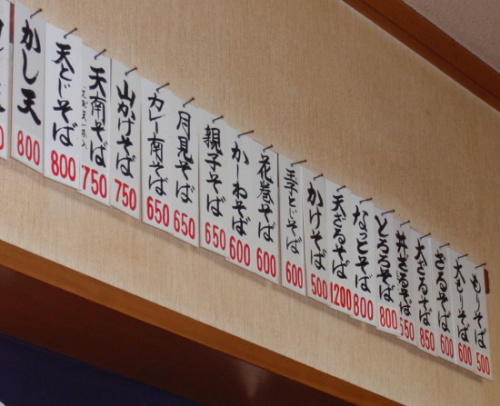 もりそば 500
大もりそば 600
ざるそば 600
大ざるそば 850
ざるそば 650
とろろそば 800
なっとそば 800
天ざるそば 1200
かけそば 500
玉子とじそば 600
花巻そば 600
かしわそば 600
親子そば 650
月見そば 650
カレー南そば 650
山かけそば 750
天南そば 750
天とじそば 800
かし天 800